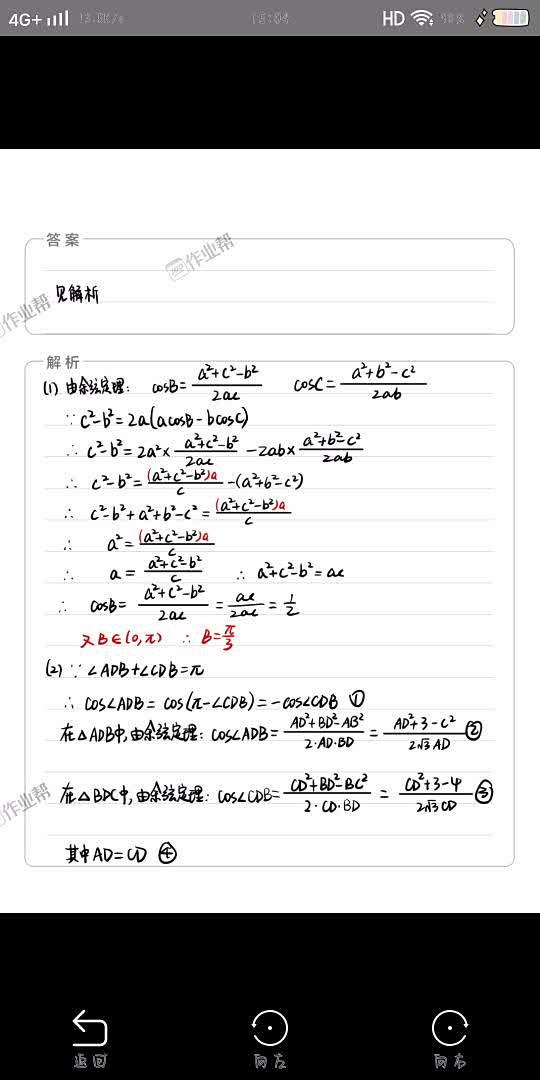 4G+ HD
答案
作业帮
见解析
作业帮
解析
(1) 由余弦定理: cosB=(a²+c²-b²)/2ac cosC=(a²+b²-c²)/2ab
∵c²-b²=2a(acosB-bcosC)
∴ c²-b²=2a²×(a²+c²-b²)/2ac -2ab×(a²+b²-c²)/2ab
∴ c²-b²=(a²+c²-b²)a/c -(a²+b²-c²)
∴ c²-b²+a²+b²-c²=(a²+c²-b²)a/c
∴ a²=(a²+c²-b²)a/c
∴ a=(a²+c²-b²)/c ∴ a²+c²-b²=ac
∴ cosB=(a²+c²-b²)/2ac=ac/2ac=1/2
又B∈(0,π) ∴ B=π/3
(2) ∵∠ADB+∠CDB=π
∴ cos∠ADB=cos(π-∠CDB)=-cos∠CDB ①
在△ADB中,由余弦定理: cos∠ADB=(AD²+BD²-AB²)/2·AD·BD=(AD²+3-c²)/2√3AD ②
作业帮
在△BDC中,由余弦定理: cos∠CDB=(CD²+BD²-BC²)/2·CD·BD=(CD²+3-4)/2√3CD ③
其中AD=CD ④
返回 向左 向右